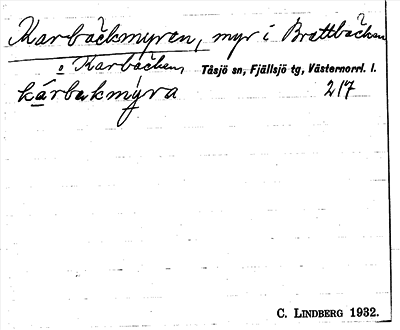 Karbäckmyren, myr i Brattbäcken
o Karbäcken, Tåsjö sn, Fjällsjö tg, Västernorrl. l.
kärbakmýra 217
C. LINDBERG 1932.